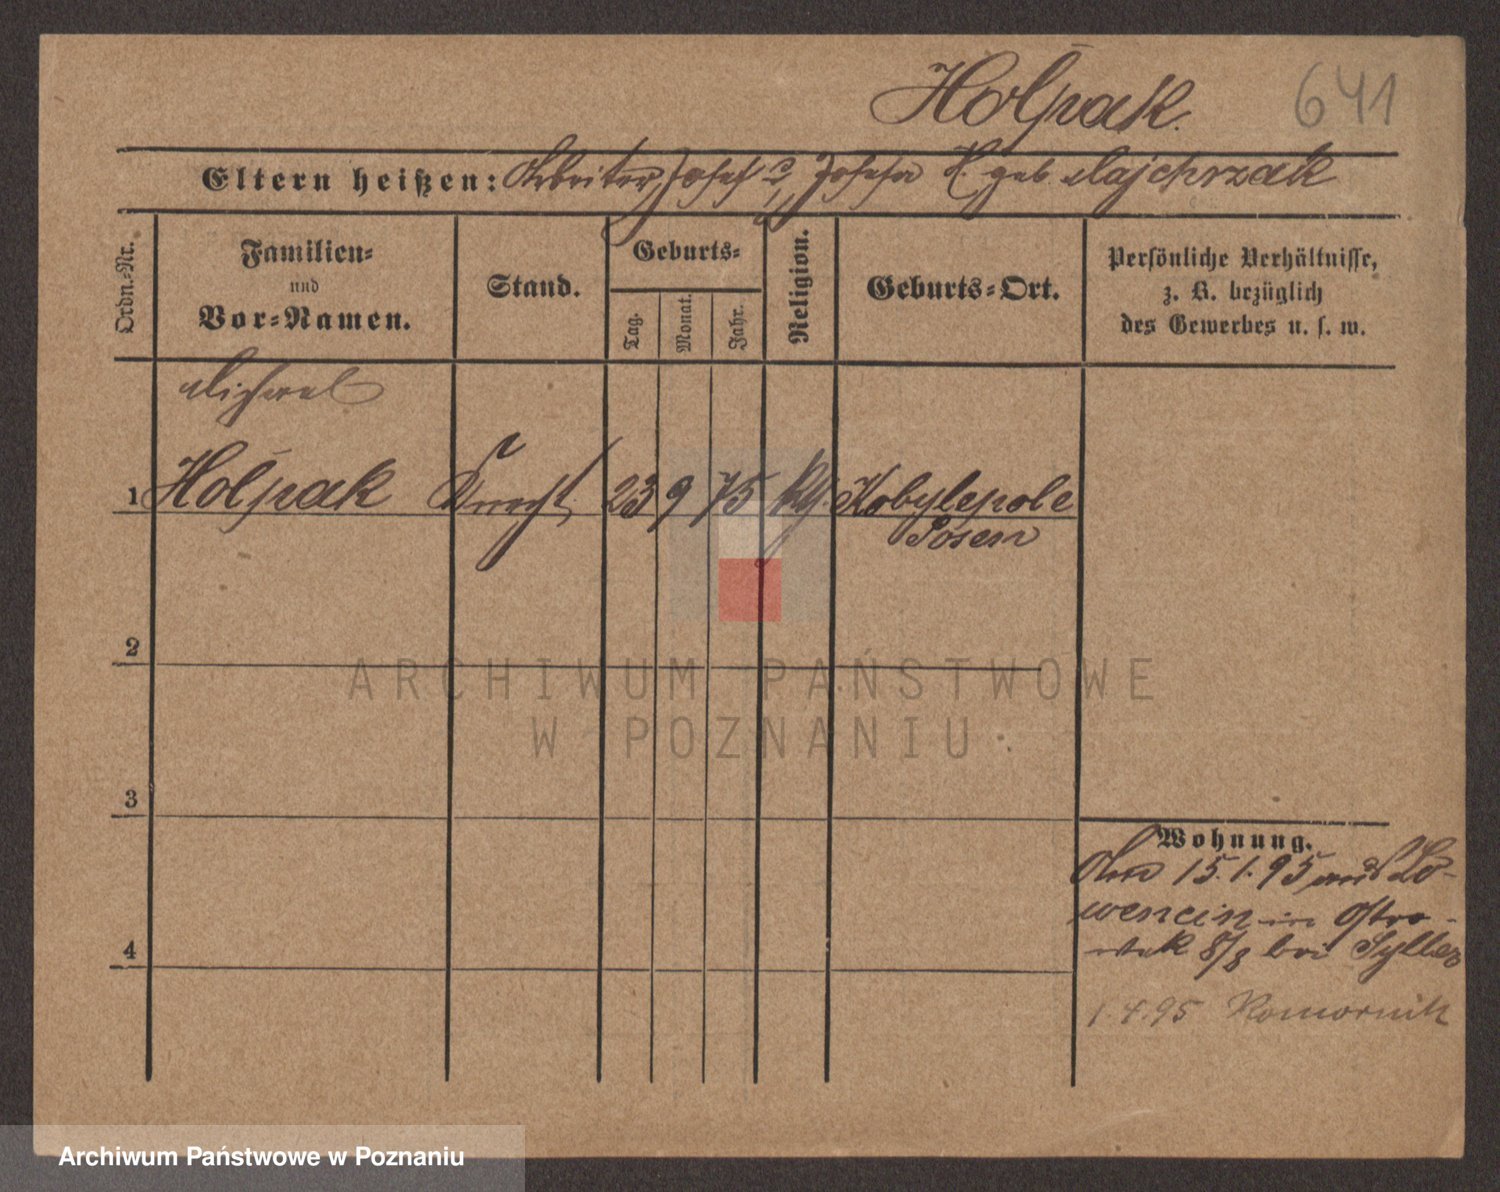 Holpak.
641
Eltern heißen: Arbeiter Josef u Josefa H. geb. Majchrzak
Ordn.-Nr.
Familien-
und
Vor-Namen.
Stand.
Geburts-
Tag.
Monat.
Jahr.
Religion.
Geburts-Ort.
Persönliche Verhältnisse,
z. B. bezüglich
des Gewerbes u. s. w.
Michael
1 Holpak Knecht 23 9 75 Kobylepole
Posen
2
ARCHIWUM PAŃSTWOWE
W POZNANIU
3
Wohnung.
15.1.95 aus Lo-
wencin in Ostro-
wek 8/8 bei Syller
4
1.4.95 Komornik
Archiwum Państwowe w Poznaniu